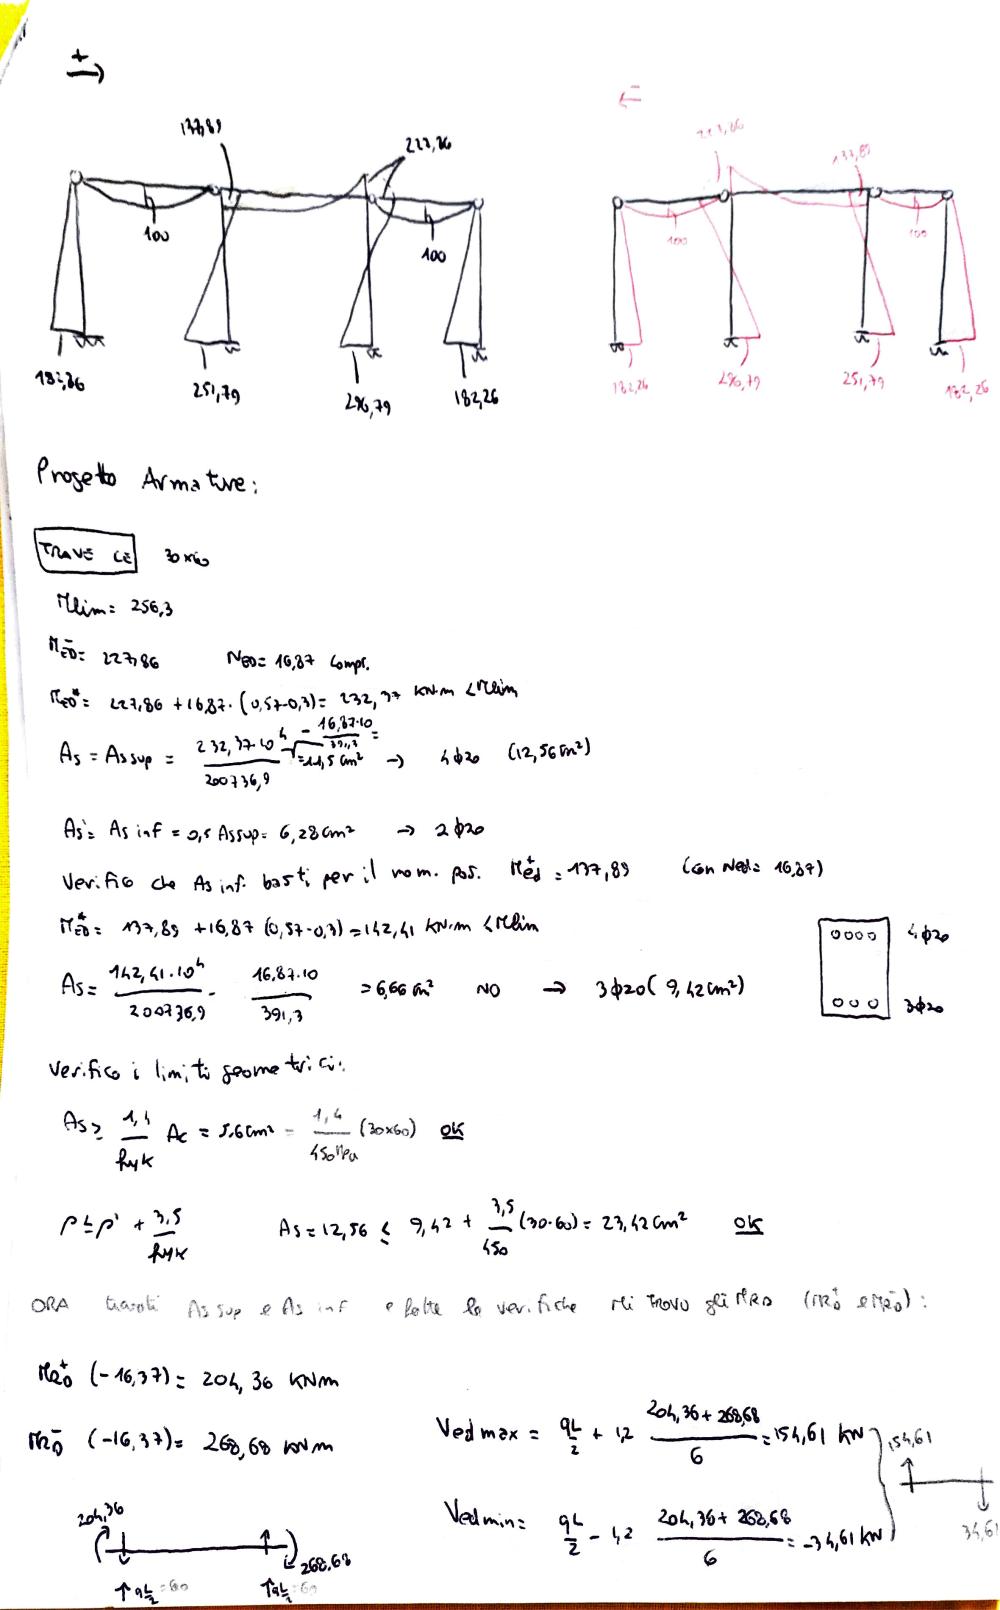 +
137,89
227,86
100
100
182,26
251,79
296,79
182,26
227,86
137,89
100
100
182,26
296,79
251,79
182,26
Progetto Armature:
TRAVE CE 30x60
Mlim = 256,3
MED⁻ = 227,86 NED = 16,87 compr.
MED* = 227,86 + 16,87 · (0,57-0,3) = 232,37 KN·m < Mlim
As = As sup = 232,37·10⁴ / 200736,9 - 16,87·10 / 391,3 = = 11,5 cm² → 4φ20 (12,56 cm²)
As' = As inf = 0,5 As sup = 6,28 cm² → 2φ20
Verifico che As inf. basti per il mom. pos. MEd⁺ = 137,89 (con Ned = 16,87)
MED* = 137,89 + 16,87 (0,57-0,3) = 142,41 KN·m < Mlim
As = 142,41·10⁴ / 200736,9 - 16,87·10 / 391,3 = 6,66 cm² NO → 3φ20 (9,42 cm²)
4φ20
3φ20
Verifico i limiti geometrici:
As ≥ 1,4 / fyk Ac = 5.6 cm² = 1,4 / 450 MPa (30x60) OK
ρ ≤ ρ' + 3,5 / fyk As = 12,56 ≤ 9,42 + 3,5 / 450 (30·60) = 23,42 cm² OK
ORA trovati As sup e As inf e fatte le verifiche mi trovo gli MRD (MRD⁺ e MRD⁻):
MRD⁺ (-16,37) = 204,36 KNm
MRD⁻ (-16,37) = 268,68 KNm
Ved max = qL/2 + 1,2 204,36 + 268,68 / 6 = 154,61 KN
Ved min = qL/2 - 1,2 204,36 + 268,68 / 6 = -34,61 KN
154,61
34,61
204,36
268,68
qL/2 = 60
qL/2 = 60